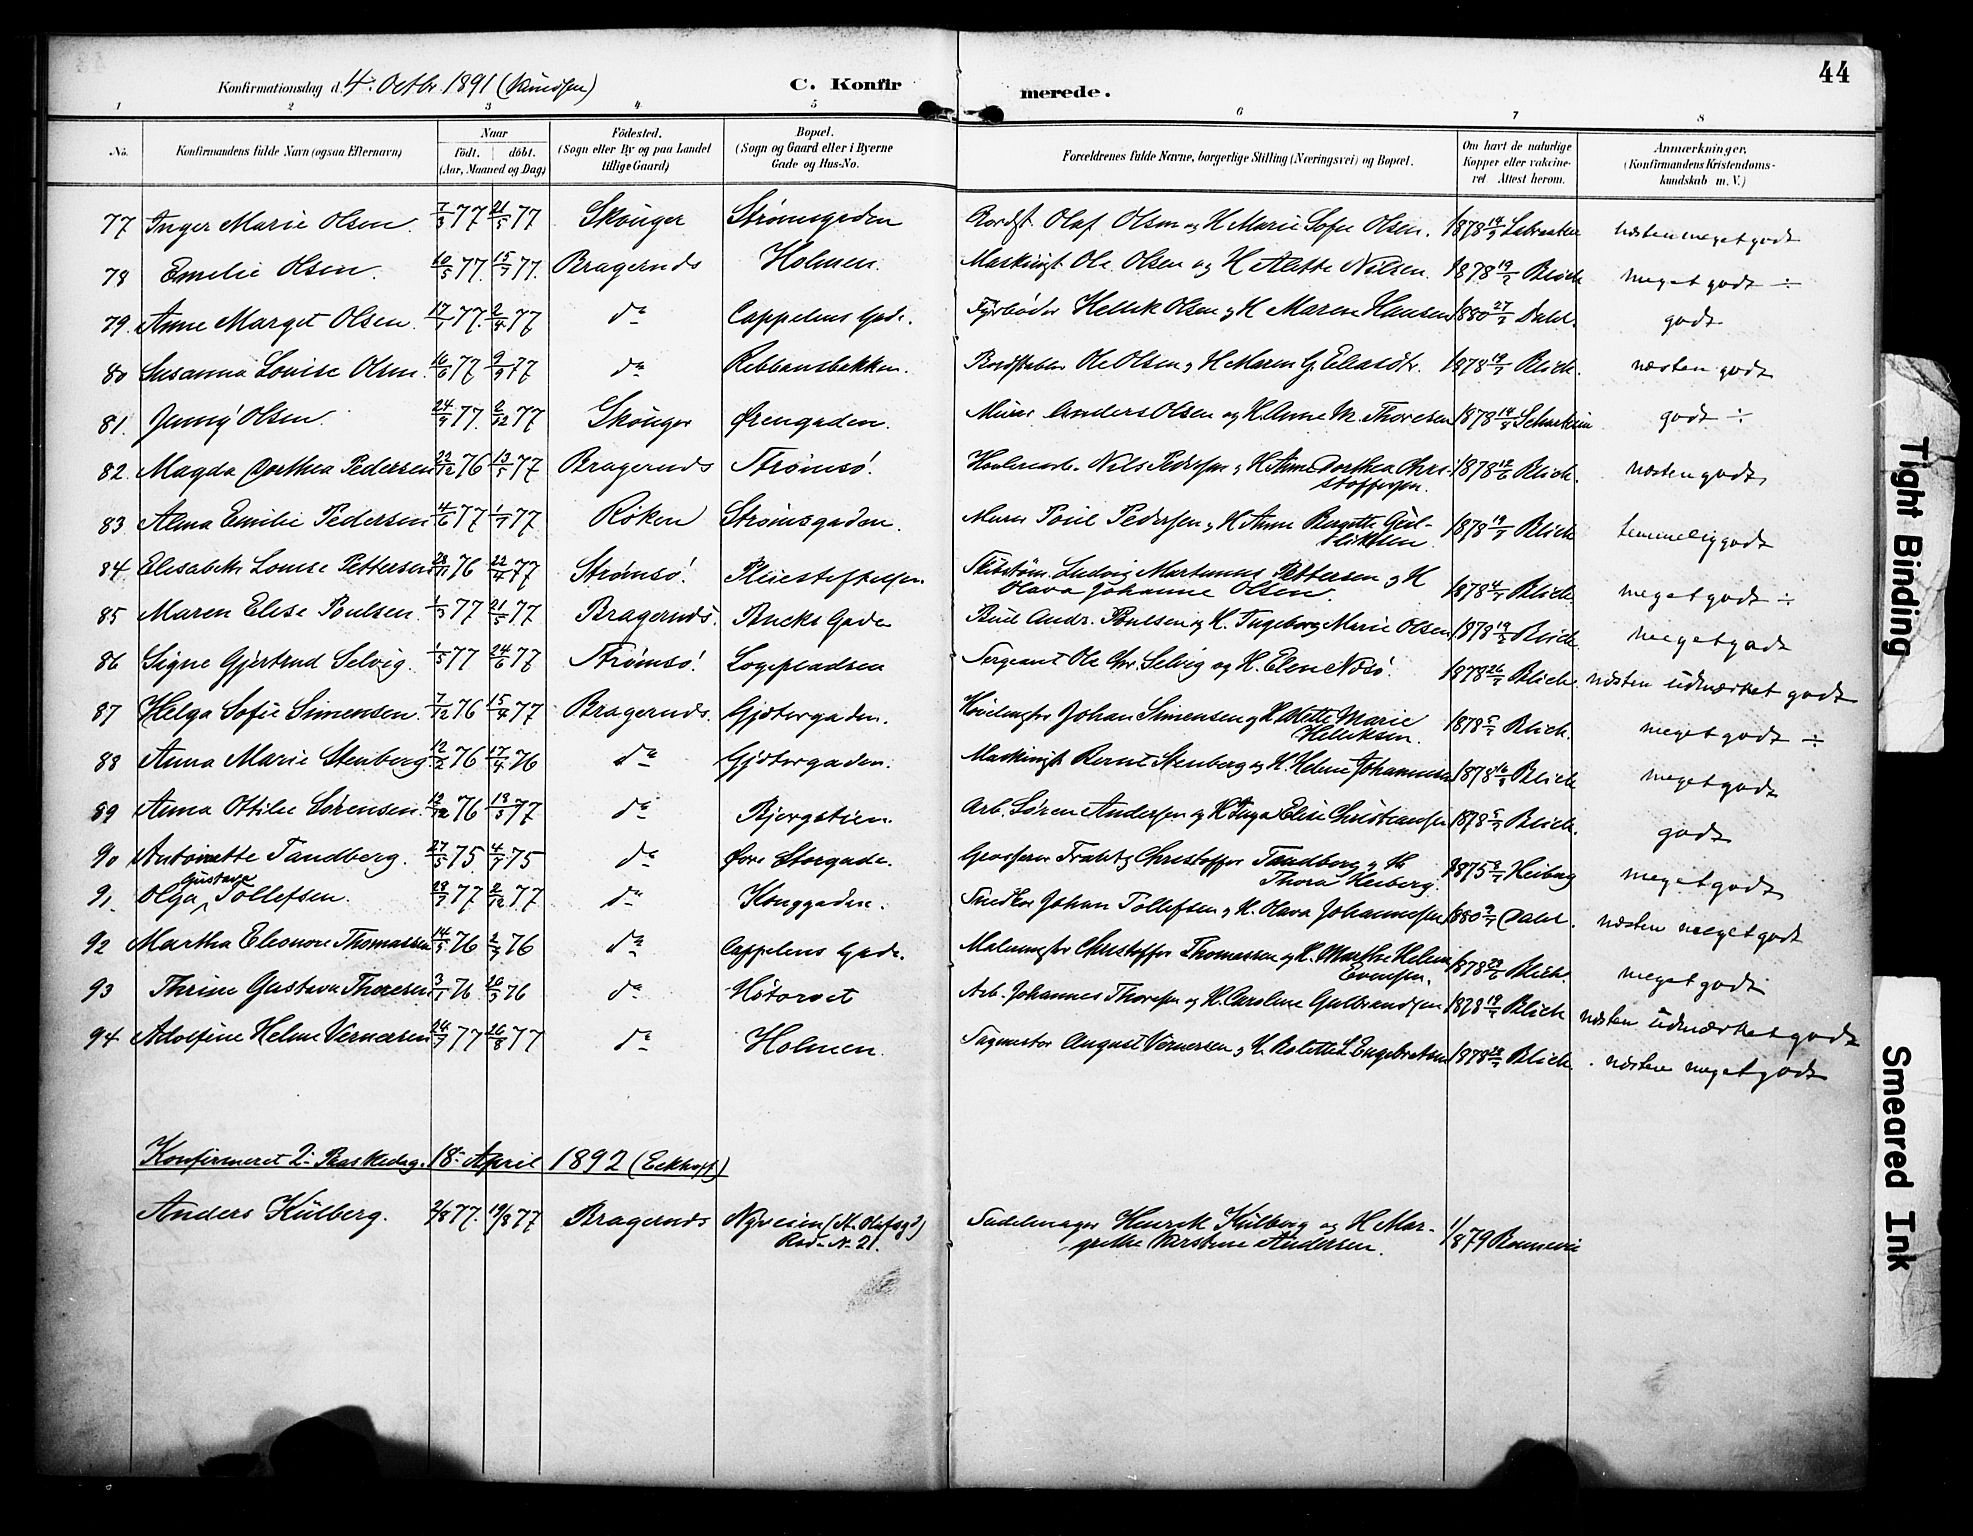 44
Konfirmationsdag d. 4. Octbr 1891 (Knudsen) C. Konfirmerede.
1 2 3 4 5 6 7 8
No. Konfirmandens fulde Navn (ogsaa Efternavn) Naar født. døbt. (Aar, Maaned og Dag) Fødested. (Sogn eller By og paa Landet tillige Gaard) Bopæl. (Sogn og Gaard eller i Byerne Gade og Hus-No. Forældrenes fulde Navne, borgerlige Stilling (Næringsvei) og Bopæl. Om havt de naturlige Kopper eller vakcineret Attest herom. Anmærkninger, (Konfirmandens Kristendomskundskab m. V.)
77 Inger Marie Olsen. 7/3 77 21/5 77 Skouger Strømsgaden Olaf Olsen og H Marie Sofie Olsen. 1878 næsten meget godt
78 Emilie Olsen. 10/5 77. 15/7 77. Bragernæs Holmen. Ole Olsen og H 1878 19/2 Blich meget godt ÷
79. Anne Marget Olsen. 17/1 77. 2/4 77 do Cappelens Gade. Fyrbøder Hellek Olsen og H Maren Hansen 1880 27/7 Dahl. godt
80 Susanna Lovise Olsen. 16/6 77 9/9 77 do Rebbansbakken. Ole Olsen og H Maren G. Eliasdtr. 1878 Blich. næsten godt
81. Jenny Olsen. 24/9 77. 2/12 77 Skouger Ørengaden. Murer Anders Olsen og H. Anne M. Thoresen 1878 godt ÷
82. Magda Dorthea Pedersen 22/12 76 13/5 77 Bragernæs Strømsø. Nils Pedersen og H Anne Dorthea Chri-
stoffersen. 1878 Blich. næsten godt
83 Alma Emilie Pedersen 4/6 77 1/7 77 Røken Strømsgaden. Murer Poul Pedersen og H Anne Bergitte Gul-
liksen 1878 Blich temmelig godt
84. Elisabeth Louise Pettersen 76 22/4 77 Strømsø. Pleiestiftelsen. Ludvig Martinus Pettersen og H
Olava Johanne Olsen. 1878 Blich. meget godt ÷
85 Maren Elise Poulsen. 1/3 77 21/5 77 Bragernæs. Bucks Gade Andr. Poulsen og H. Ingeborg Marie Olsen 1878 Blich. meget godt
86 Signe Gjertrud Selvig. 1/5 77 24/6 77 Strømsø. Logepladsen Sergeant Ole Chr. Selvig og H. Elen Næsø. 1878 Blich. næsten udmærket godt
87 Helga Sofie Simensen. 7/12 76 15/4 77 Bragernæs. Gjetergaden. Johan Simensen og H. Mette Marie
Helliksen. 1878 Blich. meget godt ÷
88 Anna Marie Stenberg. 12/2 76 17/4 76 do Gjetergaden. Bernt Stenberg og H. Helene Johannesen 1878 Blich meget godt
89 Anna Ottilie Sørensen. 12/12 76 77 do Bjergstien. Arb. Søren Andersen og H Inga Elise Christiansen 1878 Blich. godt
90 Antoinette Tandberg. 27/5 75 4/7 75 do Øvre Storgade. Grosserer Frantz Christoffer Tandberg og H.
Thora Heiberg. 1875 Heiberg meget godt
Gustava
91. Olga Tollefsen. 77 2/12 77 do Konggaden. Snedker Johan Tollefsen og H. Olava Johannesen 1880 Dahl. næsten meget godt
92 Martha Eleonore Thomassen 14/5 76 2/7 76 do Cappelens Gade. Malermester Christoffer Thomassen og H. Marthe Helene
Evensen. 1878 Blich. meget godt
93 Thrine Gustava Thoresen 3/1 76. 76 do Høtorvet Arb. Johannes Thoresen og H. Caroline Gulbrandsen 1878 Blich næsten udmærket godt
94 Adolfine Helene Vernersen 77 26/8 77 do Holmen. Sagmester August Vernersen og H. Bolette L Engebretsen 1878 Blich. næsten meget godt
Konfirmeret 2. Paaskedag. 18. April 1892 (Eckhoff)
Anders Külberg. 2/8 77. 19/8 77 Bragernæs Nyveien (St. Olafsgd)
Rød. N. 21. Sadelmager Henrik Külberg og H Mar-
grethe Karstine Andersen. 1/8 79
Tight Binding
Smeared Ink